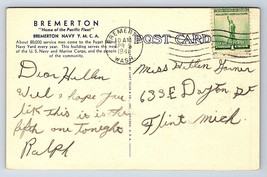 BREMERTON
"Home of the Pacific Fleet"
BREMERTON NAVY Y.M.C.A.
About 80,000 service men come to the Puget Sound
Navy Yard every year. This building serves the men
of the U. S. Navy and Marine Corps, and the people
of the community.
BREMERTON
10 AM
194
WASH.
POST CARD
Dear Hillen
Well I hope you
like this it is the
fifth one tonight
Ralph
Miss Willen Garner
633 E Dayton St
Flint Mich.